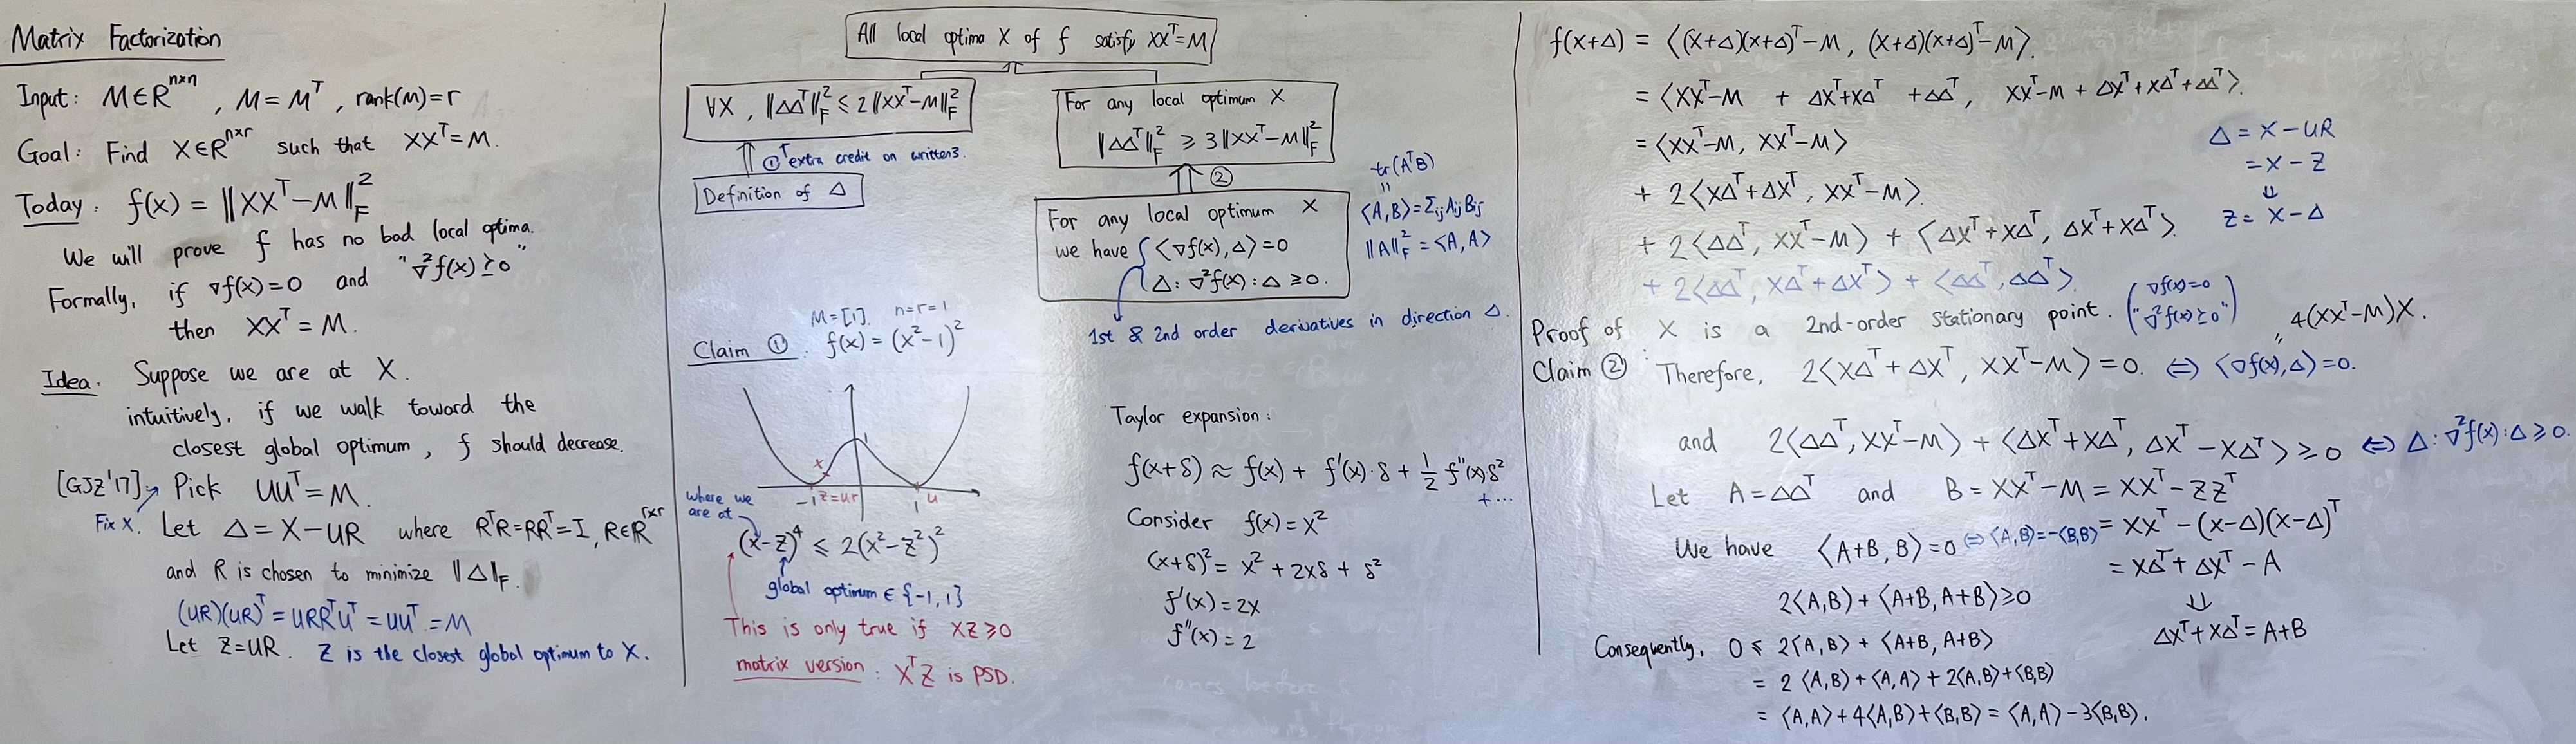 Matrix Factorization
Input: M∈R^{n×n}, M=M^T, rank(M)=r
Goal: Find X∈R^{n×r} such that XX^T=M.
Today: f(x) = ‖XX^T−M‖_F^2
We will prove f has no bad local optima.
Formally, if ∇f(x)=0 and "∇²f(x)⪰0"
then XX^T=M.
Idea. Suppose we are at X.
intuitively, if we walk toward the
closest global optimum, f should decrease.
[GJZ'17] Pick UU^T=M.
Fix X. Let Δ=X−UR where R^TR=RR^T=I, R∈R^{r×r}
and R is chosen to minimize ‖Δ‖_F.
(UR)(UR)^T=URR^TU^T=UU^T=M
Let Z=UR. Z is the closest global optimum to X.
All local optima X of f satisfy XX^T=M
∀X, ‖ΔΔ^T‖_F^2 ≤ 2‖XX^T−M‖_F^2
① extra credit on written3.
Definition of Δ
For any local optimum X
‖ΔΔ^T‖_F^2 ≥ 3‖XX^T−M‖_F^2
②
For any local optimum X
we have { ⟨∇f(x),Δ⟩=0
Δ:∇²f(x):Δ ≥0.
tr(A^TB)
"
⟨A,B⟩=Σ_{ij}A_{ij}B_{ij}
‖A‖_F^2=⟨A,A⟩
1st & 2nd order derivatives in direction Δ.
M=[1]. n=r=1
Claim ①. f(x)=(x²−1)²
1
x
−1 z=ur 1 u
where we
are at
(x−z)^4 ≤ 2(x²−z²)²
global optimum ∈{−1,1}
This is only true if XZ≥0
matrix version: X^TZ is PSD.
Taylor expansion:
f(x+δ) ≈ f(x) + f'(x)·δ + 1/2 f''(x)δ²
+...
Consider f(x)=x²
(x+δ)²= x²+2xδ+δ²
f'(x)=2x
f''(x)=2
f(x+Δ) = ⟨(x+Δ)(x+Δ)^T−M, (x+Δ)(x+Δ)^T−M⟩.
= ⟨XX^T−M + ΔX^T+XΔ^T +ΔΔ^T, XX^T−M+ΔX^T+XΔ^T+ΔΔ^T⟩.
= ⟨XX^T−M, XX^T−M⟩
+ 2⟨XΔ^T+ΔX^T, XX^T−M⟩.
+ 2⟨ΔΔ^T, XX^T−M⟩ + ⟨ΔX^T+XΔ^T, ΔX^T+XΔ^T⟩
+ 2⟨ΔΔ^T, XΔ^T+ΔX^T⟩ + ⟨ΔΔ^T, ΔΔ^T⟩.
Δ=X−UR
=X−Z
⇓
Z=X−Δ
Proof of Claim ②: X is a 2nd-order stationary point. (∇f(x)=0 "∇²f(x)⪰0")
4(XX^T−M)X.
"
Therefore, 2⟨XΔ^T+ΔX^T, XX^T−M⟩=0. ⇔ ⟨∇f(x),Δ⟩=0.
and 2⟨ΔΔ^T, XX^T−M⟩ + ⟨ΔX^T+XΔ^T, ΔX^T−XΔ^T⟩≥0 ⇔ Δ:∇²f(x):Δ≥0.
Let A=ΔΔ^T and B=XX^T−M=XX^T−ZZ^T
= XX^T−(x−Δ)(x−Δ)^T
We have ⟨A+B, B⟩=0 ⇔⟨A,B⟩=−⟨B,B⟩
= XΔ^T+ΔX^T−A
⇓
ΔX^T+XΔ^T=A+B
2⟨A,B⟩+⟨A+B,A+B⟩≥0
Consequently, 0 ≤ 2⟨A,B⟩+⟨A+B,A+B⟩
= 2⟨A,B⟩+⟨A,A⟩+2⟨A,B⟩+⟨B,B⟩
= ⟨A,A⟩+4⟨A,B⟩+⟨B,B⟩=⟨A,A⟩−3⟨B,B⟩.